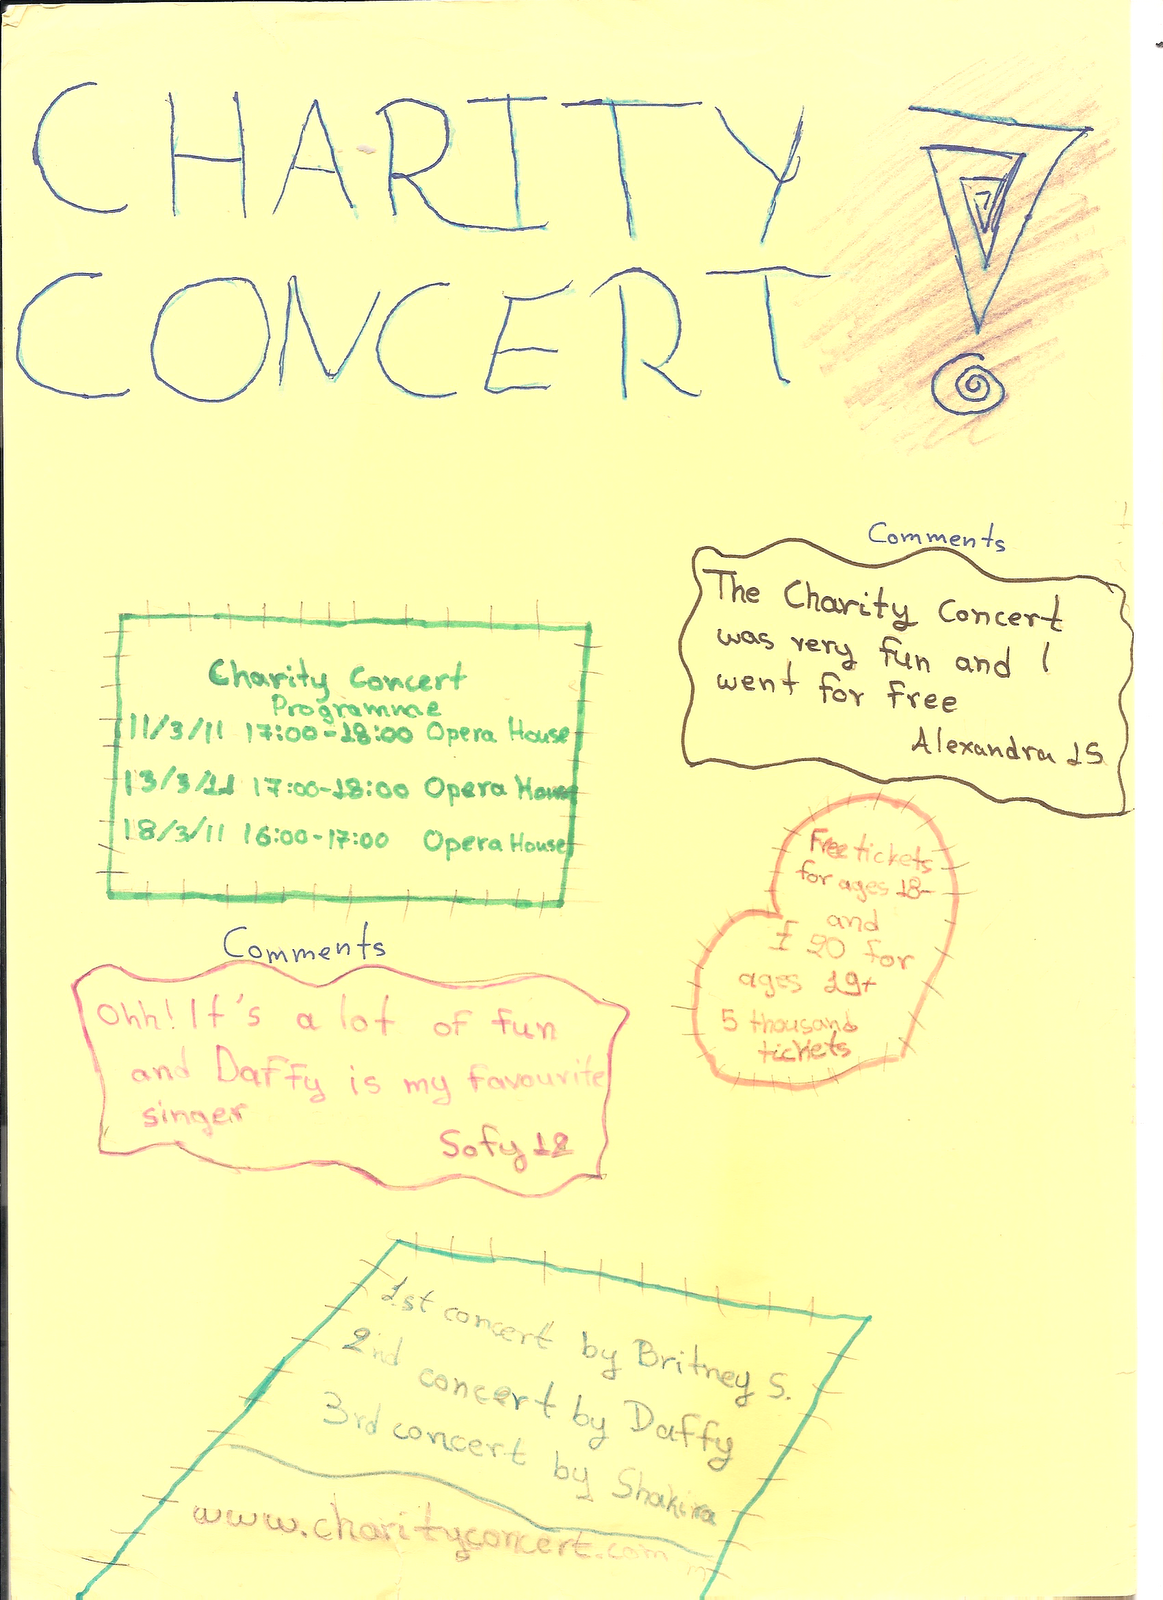 CHARITY
CONCERT
Comments
The Charity Concert
was very fun and I
went for free
Alexandra 15
Charity Concert
Programme
11/3/11 17:00-18:00 Opera House
13/3/11 17:00-18:00 Opera House
18/3/11 16:00-17:00 Opera House
Free tickets
for ages 18-
and
£ 20 for
ages 19+
5 thousand
tickets
Comments
Ohh! It's a lot of fun
and Daffy is my favourite
singer
Sofy 12
1st concert by Britney S.
2nd concert by Daffy
3rd concert by Shakira
www.charityconcert.com